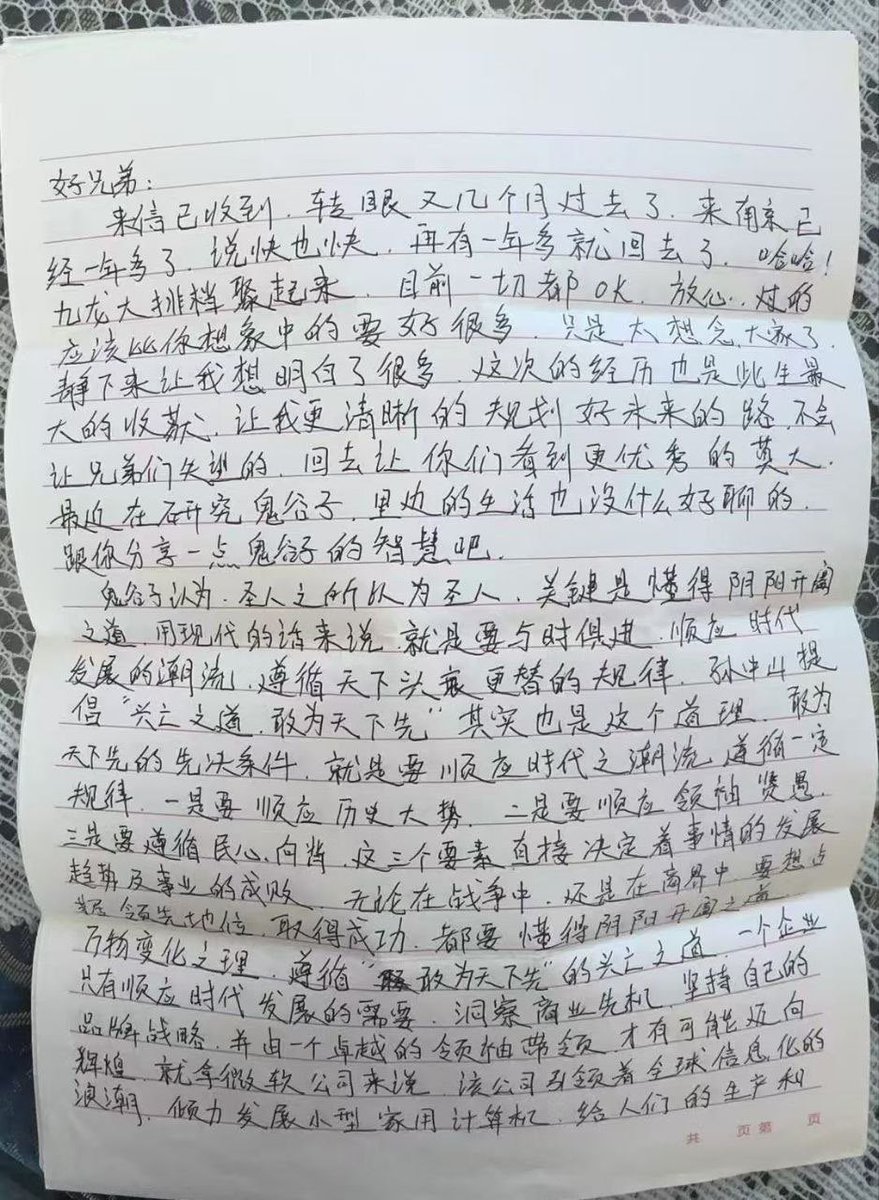 好兄弟：
来信已收到．转眼又几个月过去了．来南京已
经一年多了．说快也快．再有一年多就回去了．哈哈！
九龙大排档聚起来．目前一切都OK．放心．过的
应该比你想象中的要好很多．只是太想念大家了．
静下来让我想明白了很多．这次的经历也是此生最
大的收获．让我更清晰的规划好未来的路．不会
让兄弟们失望的．回去让你们看到更优秀的莫大．
最近在研究鬼谷子．里边的生活也没什么好聊的．
跟你分享一点鬼谷子的智慧吧．
鬼谷子认为．圣人之所以为圣人．关键是懂得阴阳开阖
之道．用现代的话来说．就是要与时俱进．顺应时代
发展的潮流．遵循天下兴衰更替的规律．孙中山提
倡“兴亡之道．敢为天下先”其实也是这个道理．敢为
天下先的先决条件．就是要顺应时代之潮流．遵循一定
规律．一是要顺应历史大势．二是要顺应领袖贤愚．
三是要遵循民心向背．这三个要素直接决定着事情的发展
趋势及事业的成败．无论在战争中．还是在商界中．要想占
据领先地位．取得成功．都要懂得阴阳开阖之道．
万物变化之理．遵循“敢为天下先”的兴亡之道．一个企业
只有顺应时代发展的需要．洞察商业先机．坚持自己的
品牌战略．并由一个卓越的领袖带领．才有可能迈向
辉煌．就拿微软公司来说．该公司引领着全球信息化的
浪潮．倾力发展小型家用计算机．给人们的生产和
共 页第 页